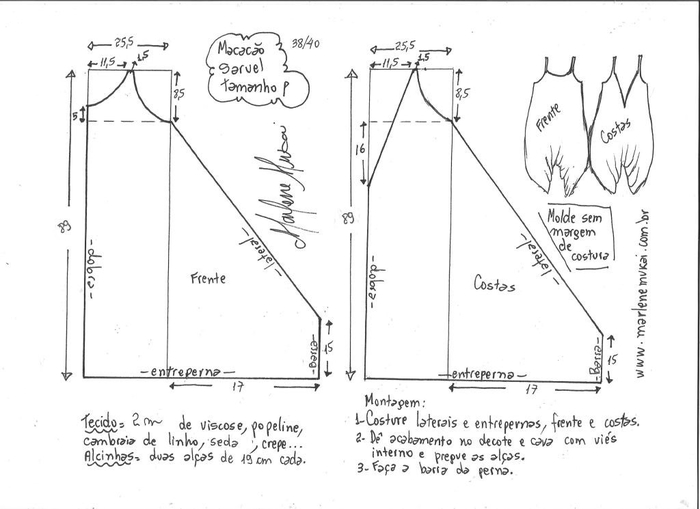 25,5
11,5
1,5
8,5
5
89
Macacão
saruel
tamanho P
38/40
Marlene Mukai
-dobra-
Frente
-lateral-
-entreperna-
-Barra-
15
17
25,5
11,5
1,5
8,5
16
89
-dobra-
Costas
-lateral-
-entreperna-
-Barra-
15
17
Frente
Costas
Molde sem
margem
de
costura
www.marlenemukai.com.br
Tecido= 2m de viscose, popeline,
cambraia de linho, seda, crepe...
Alcinhas= duas alças de 19 cm cada.
Montagem:
1- Costure laterais e entrepernas, frente e costas.
2- Dê acabamento no decote e cava com viés
interno e pregue as alças.
3- Faça a barra da perna.